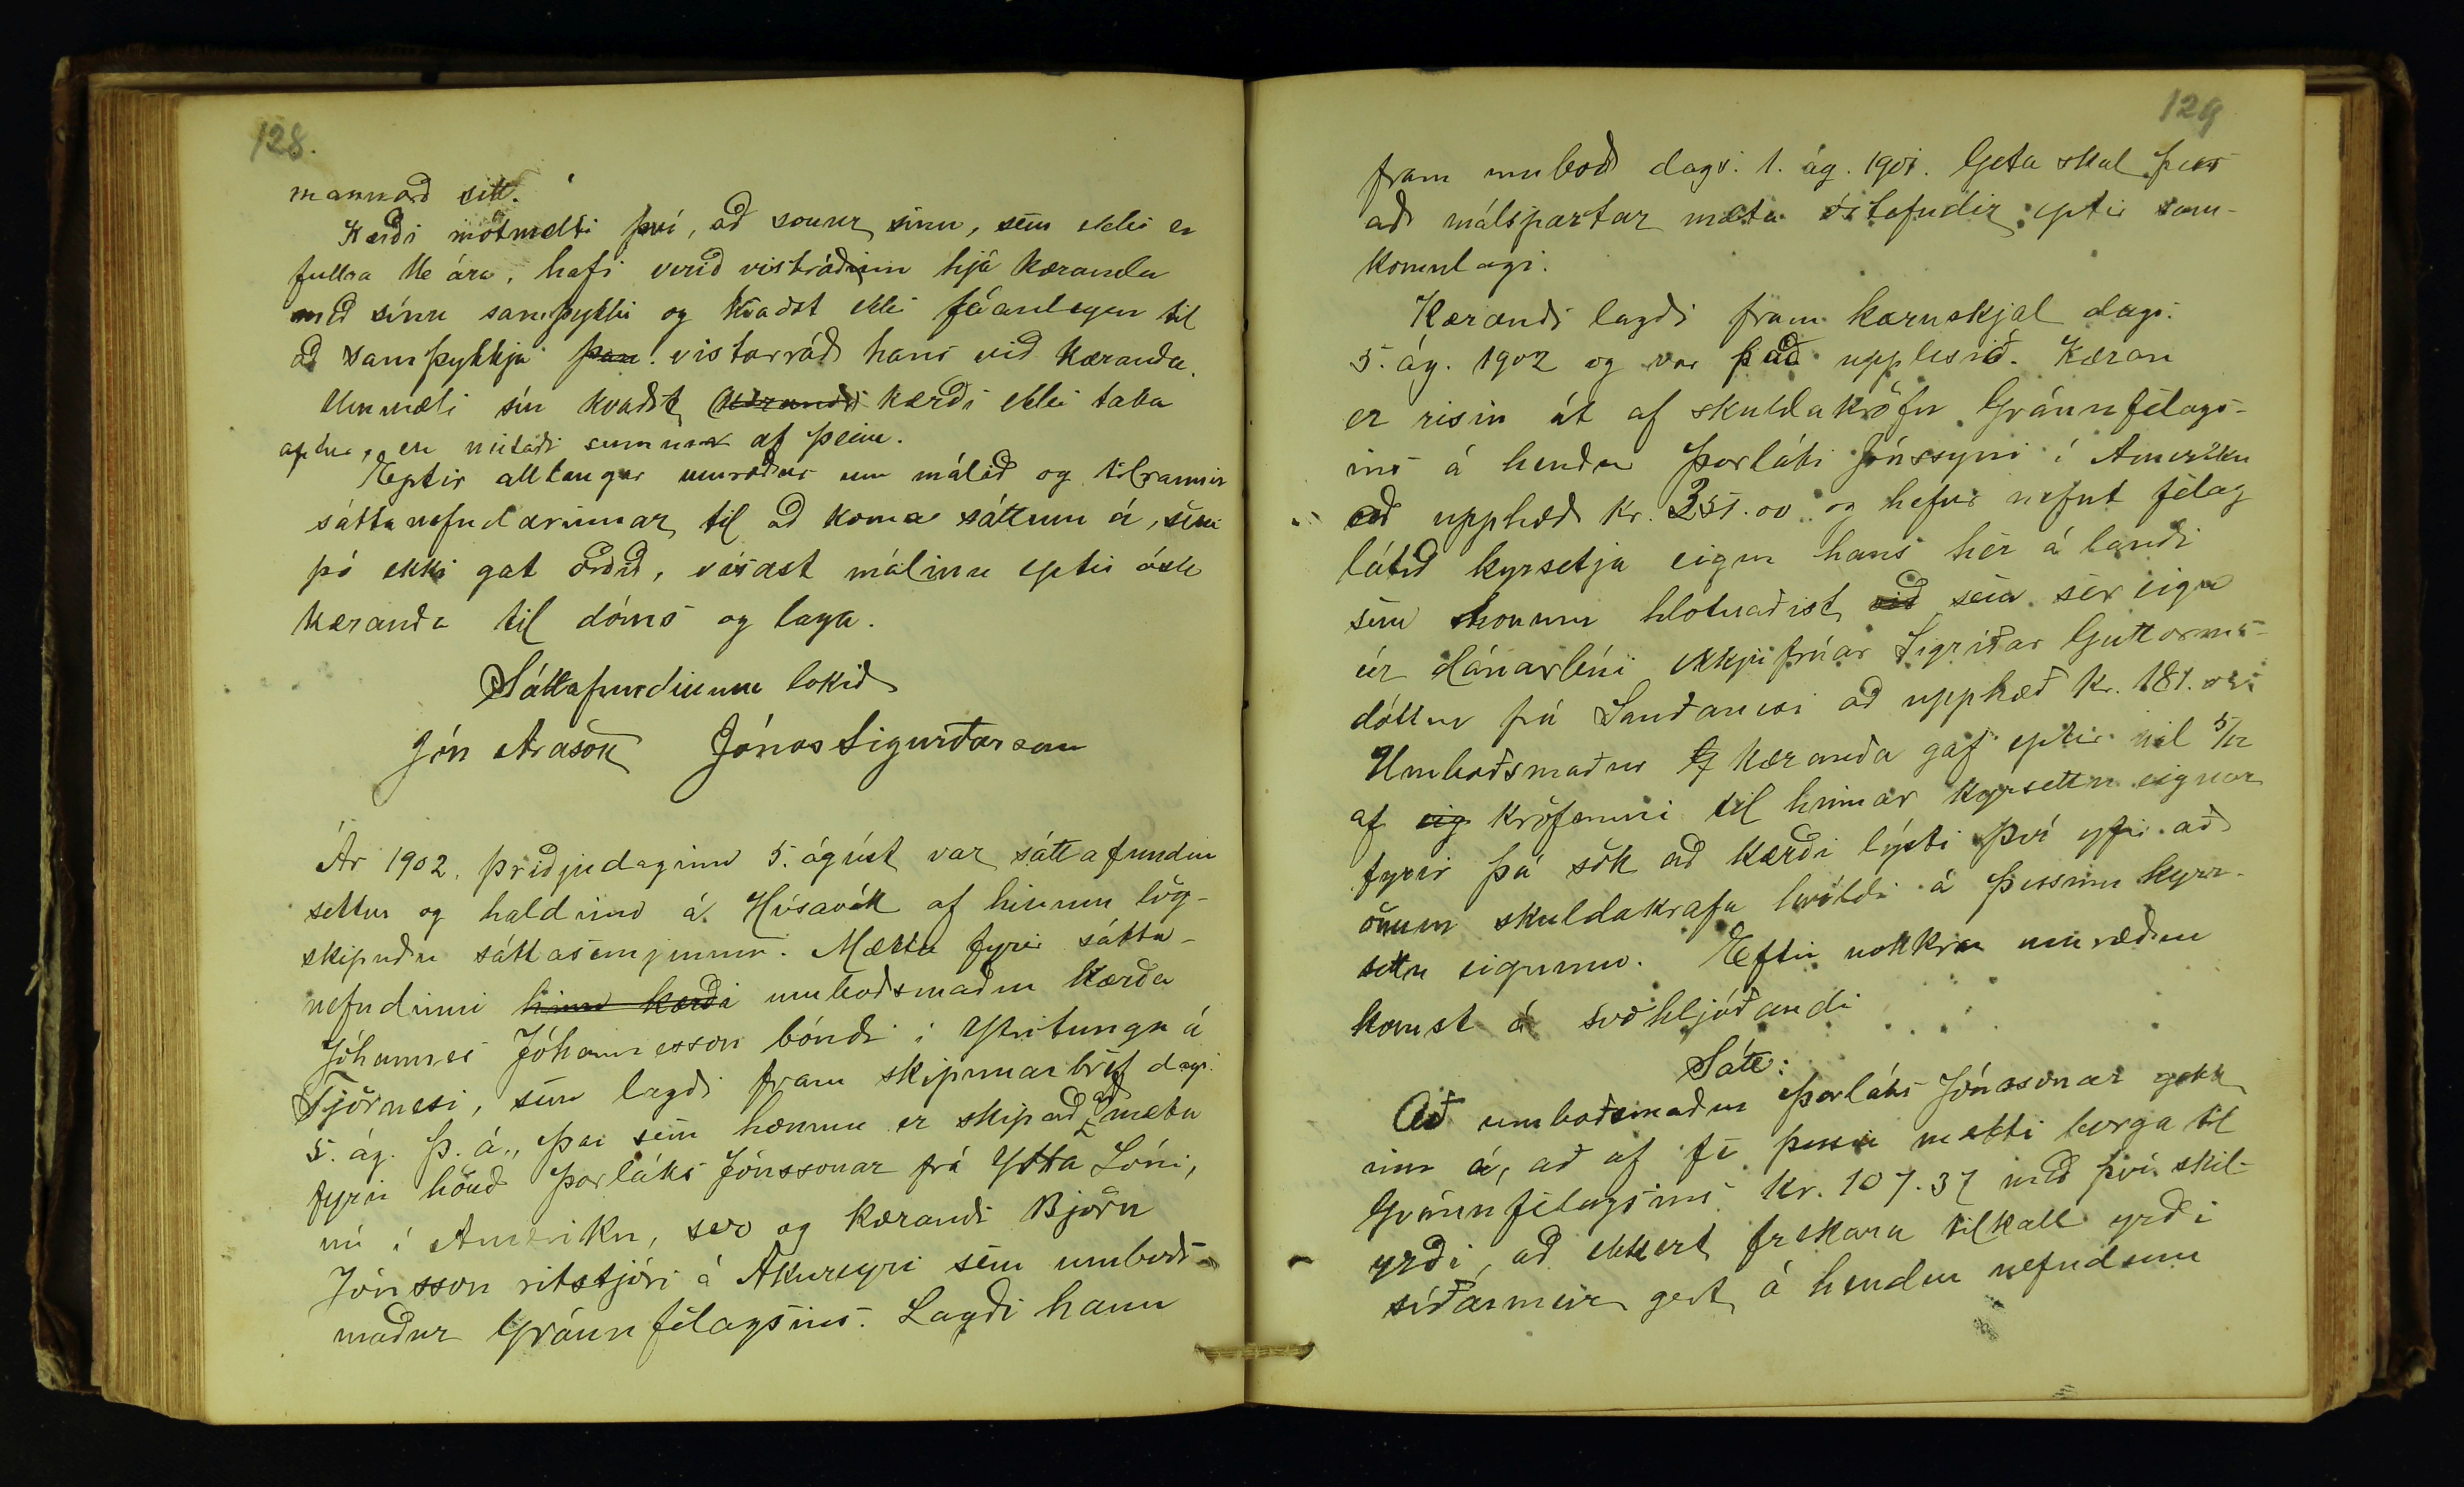 128.
mannorð sitt.
Kærði mótmælti því, að sonur sinn, sem ekki er
fullra 16 ára, hafi verið vistráðinn hjá kæranda
með sínu samþykki og kvaðst ekki fáanlegur til
að samþykkja þau vistarráð hans við kæranda.
Ummæli sín kvaðst kærandi kærði ekki taka
aptur, en neitaði sumum af þeim.
Eptir alllangar umræður um málið og tilraunir
sáttanefndarinnar til að koma sáttum á, sem
þó ekki gat orðið, vísast málinu eptir ósk
kæranda til dóms og laga.
Sáttafundinum lokið
Jón Arason Jónas Sigurðarson
Ár 1902, þriðjudaginn 5. ágúst var sáttafundur
settur og haldinn á Húsavík af hinum lög-
skipuðu sáttasemjurum. Mættu fyrir sátta-
nefndinni hinn kærði umboðsmaður kærða
Jóhannes Jóhannesson bóndi í Ytritungu á
Tjörnesi, sem lagði fram skipunarbréf dags.
5. ág. þ. á., þar sem honum er skipað að mæta
fyrir hönd Þorláks Jónssonar frá Ytra Lóni,
nú í Ameriku, svo og kærandi Björn
Jónsson ritstjóri á Akureyri sem umboðs-
maður Gránufélagsins. Lagði hann
129
fram umboð dags. 1. ág. 1901. Geta skal þess
að málspartar mæta óstefndir eptir sam-
komulagi.
Kærandi lagði fram kæruskjal dags.
5. ág. 1902 og var það upplesið. Kæran
er risin út af skuldakröfu Gránufélags-
ins á hendur Þorláki Jónssyni í Ameríku
að upphæð kr. 351.00 og hefur nefnt félag
látið kyrsetja eigur hans hér á landi
sem honum hlotnaðist við sem sér eign
úr dánarbúi ekkjufrúar Sigríðar Guttorms-
dóttur frá Sauðanesi að upphæð kr. 181.
Umboðsmaður kæranda gaf eptir til 5/12
af eig kröfunni til hinnar kyrsettu eignar
fyrir þá sök að kærði lýsti því yfir að
önnur skuldakrafa hvíldi á þessum kyrr-
settu eignum. Eftir nokkrar umræður
komst á svohljóðandi
Sátt:
Að umboðsmaður Þorláks Jónssonar gekk
inn á, að af fé þessu mætti borga til
Gránufélagsins kr. 107.37 með því skil-
yrði, að ekkert frekara tilkall yrði
síðarmeir gert á hendur nefndum